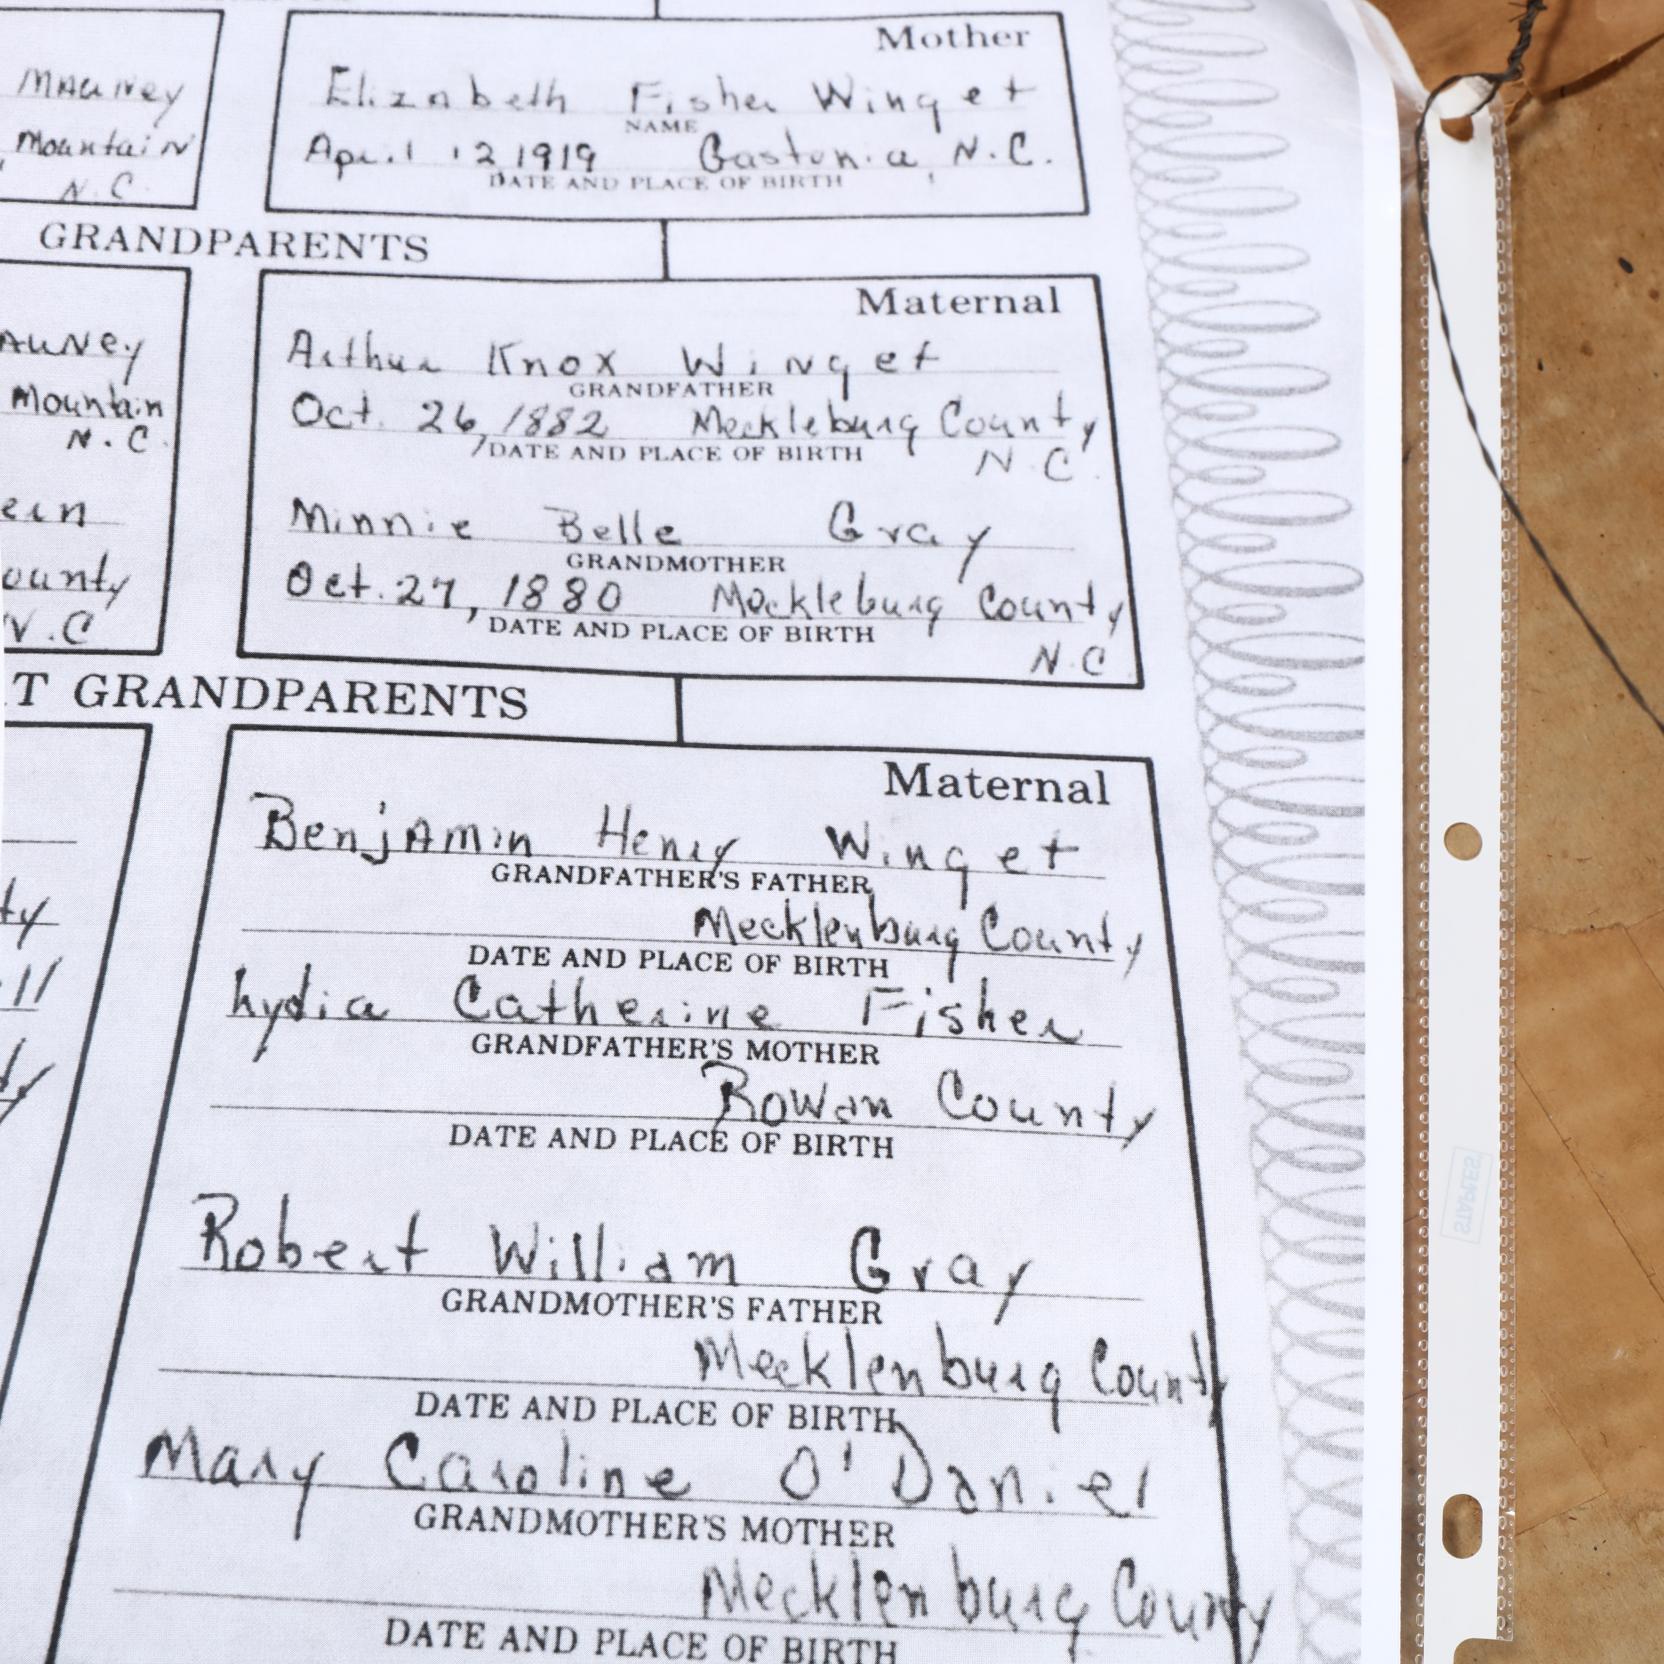 Mother
Mauney
Elizabeth Fisher Winget
NAME
Mountain
April 12, 1919 Gastonia, N.C.
N.C.
DATE AND PLACE OF BIRTH
GRANDPARENTS
Maternal
auney
Arthur Knox Winget
GRANDFATHER
Mountain
Oct. 26, 1882 Meckleburg County
N.C.
DATE AND PLACE OF BIRTH
N.C.
ern
Minnie Belle Gray
GRANDMOTHER
ounty
Oct. 27, 1880 Meckleburg County
N.C
DATE AND PLACE OF BIRTH
N.C
T GRANDPARENTS
Maternal
Benjamin Henry Winget
GRANDFATHER'S FATHER
ty
Mecklenburg County
DATE AND PLACE OF BIRTH
ll
Lydia Catherine Fisher
GRANDFATHER'S MOTHER
ty
Rowan County
DATE AND PLACE OF BIRTH
STAPLES
Robert William Gray
GRANDMOTHER'S FATHER
Mecklenburg County
DATE AND PLACE OF BIRTH
Mary Caroline O'Daniel
GRANDMOTHER'S MOTHER
Mecklenburg County
DATE AND PLACE OF BIRTH